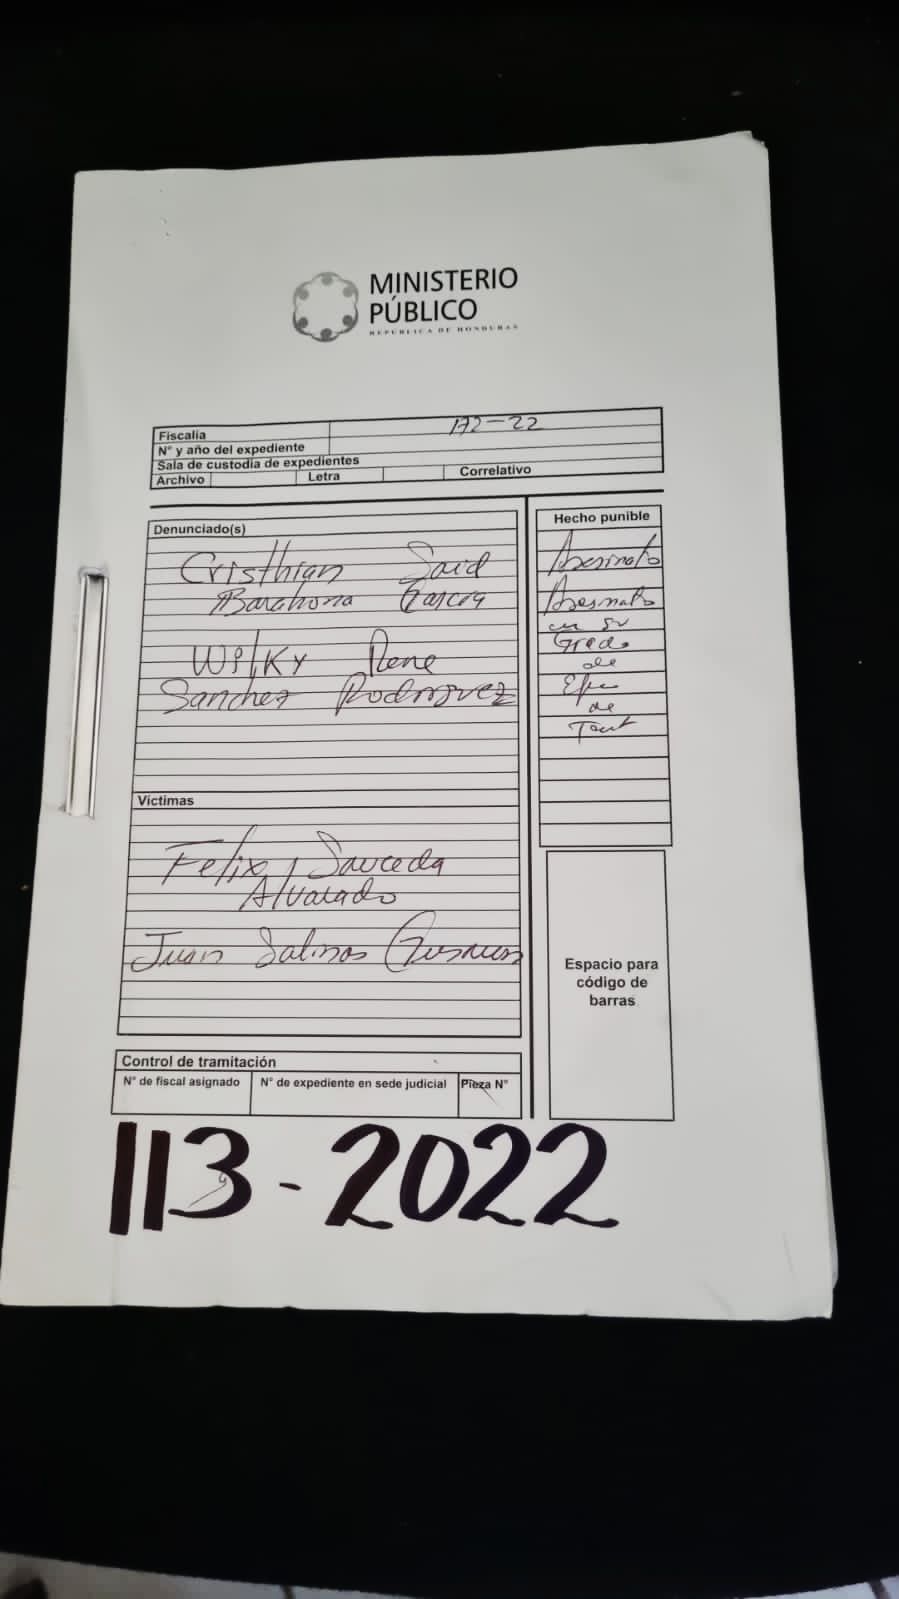 MINISTERIO
PÚBLICO
REPÚBLICA DE HONDURAS
Fiscalia
172-22
N° y año del expediente
Sala de custodia de expedientes
Archivo Letra Correlativo
Denunciado(s)
Cristhian Said
Barahona Garcia
Wilky Rene
Sanchez Rodriguez
Hecho punible
Asesinato
Asesinato
en su
Grado
de
de
Victimas
Felix Sauceda
Alvarado
Juan Salinas
Espacio para
código de
barras
Control de tramitación
N° de fiscal asignado N° de expediente en sede judicial Pieza N°
113-2022